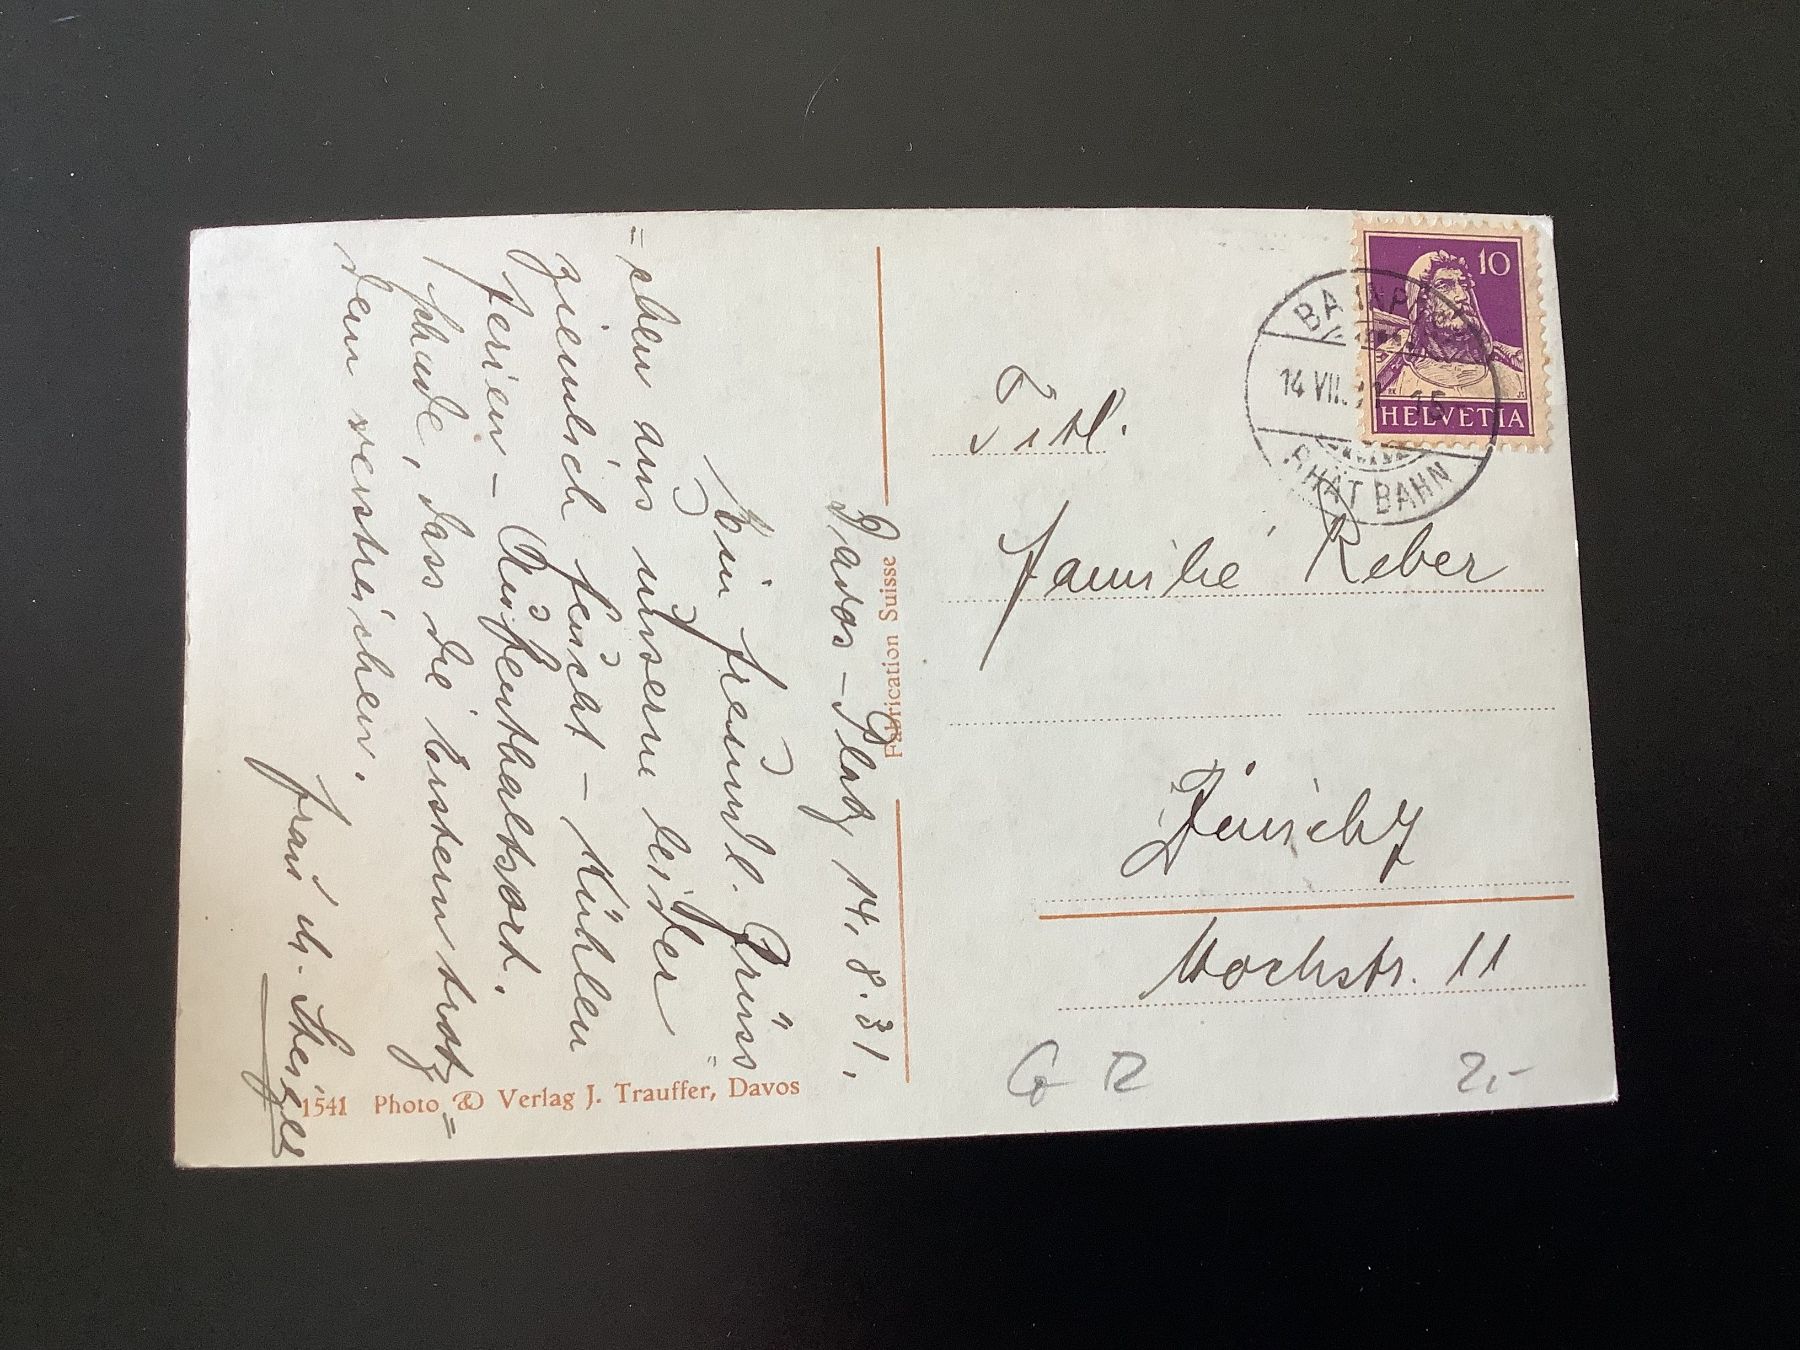 Davos-Platz, 14. 8. 31.
Ein freundl. Grüss
=chen aus unserm leider
ziemlich feucht-kühlen
Ferien-Aufenthaltsort.
Schade, dass die erstern trotz=
dem verstreichen.
Frau
1541 Photo & Verlag J. Trauffer, Davos
Fabrication Suisse
10
HELVETIA
BAHNPOST
14 VIII. 31 15
RHÄT BAHN
Titl.
Familie Reber
Zürich 7
Hochstr. 11
2.-